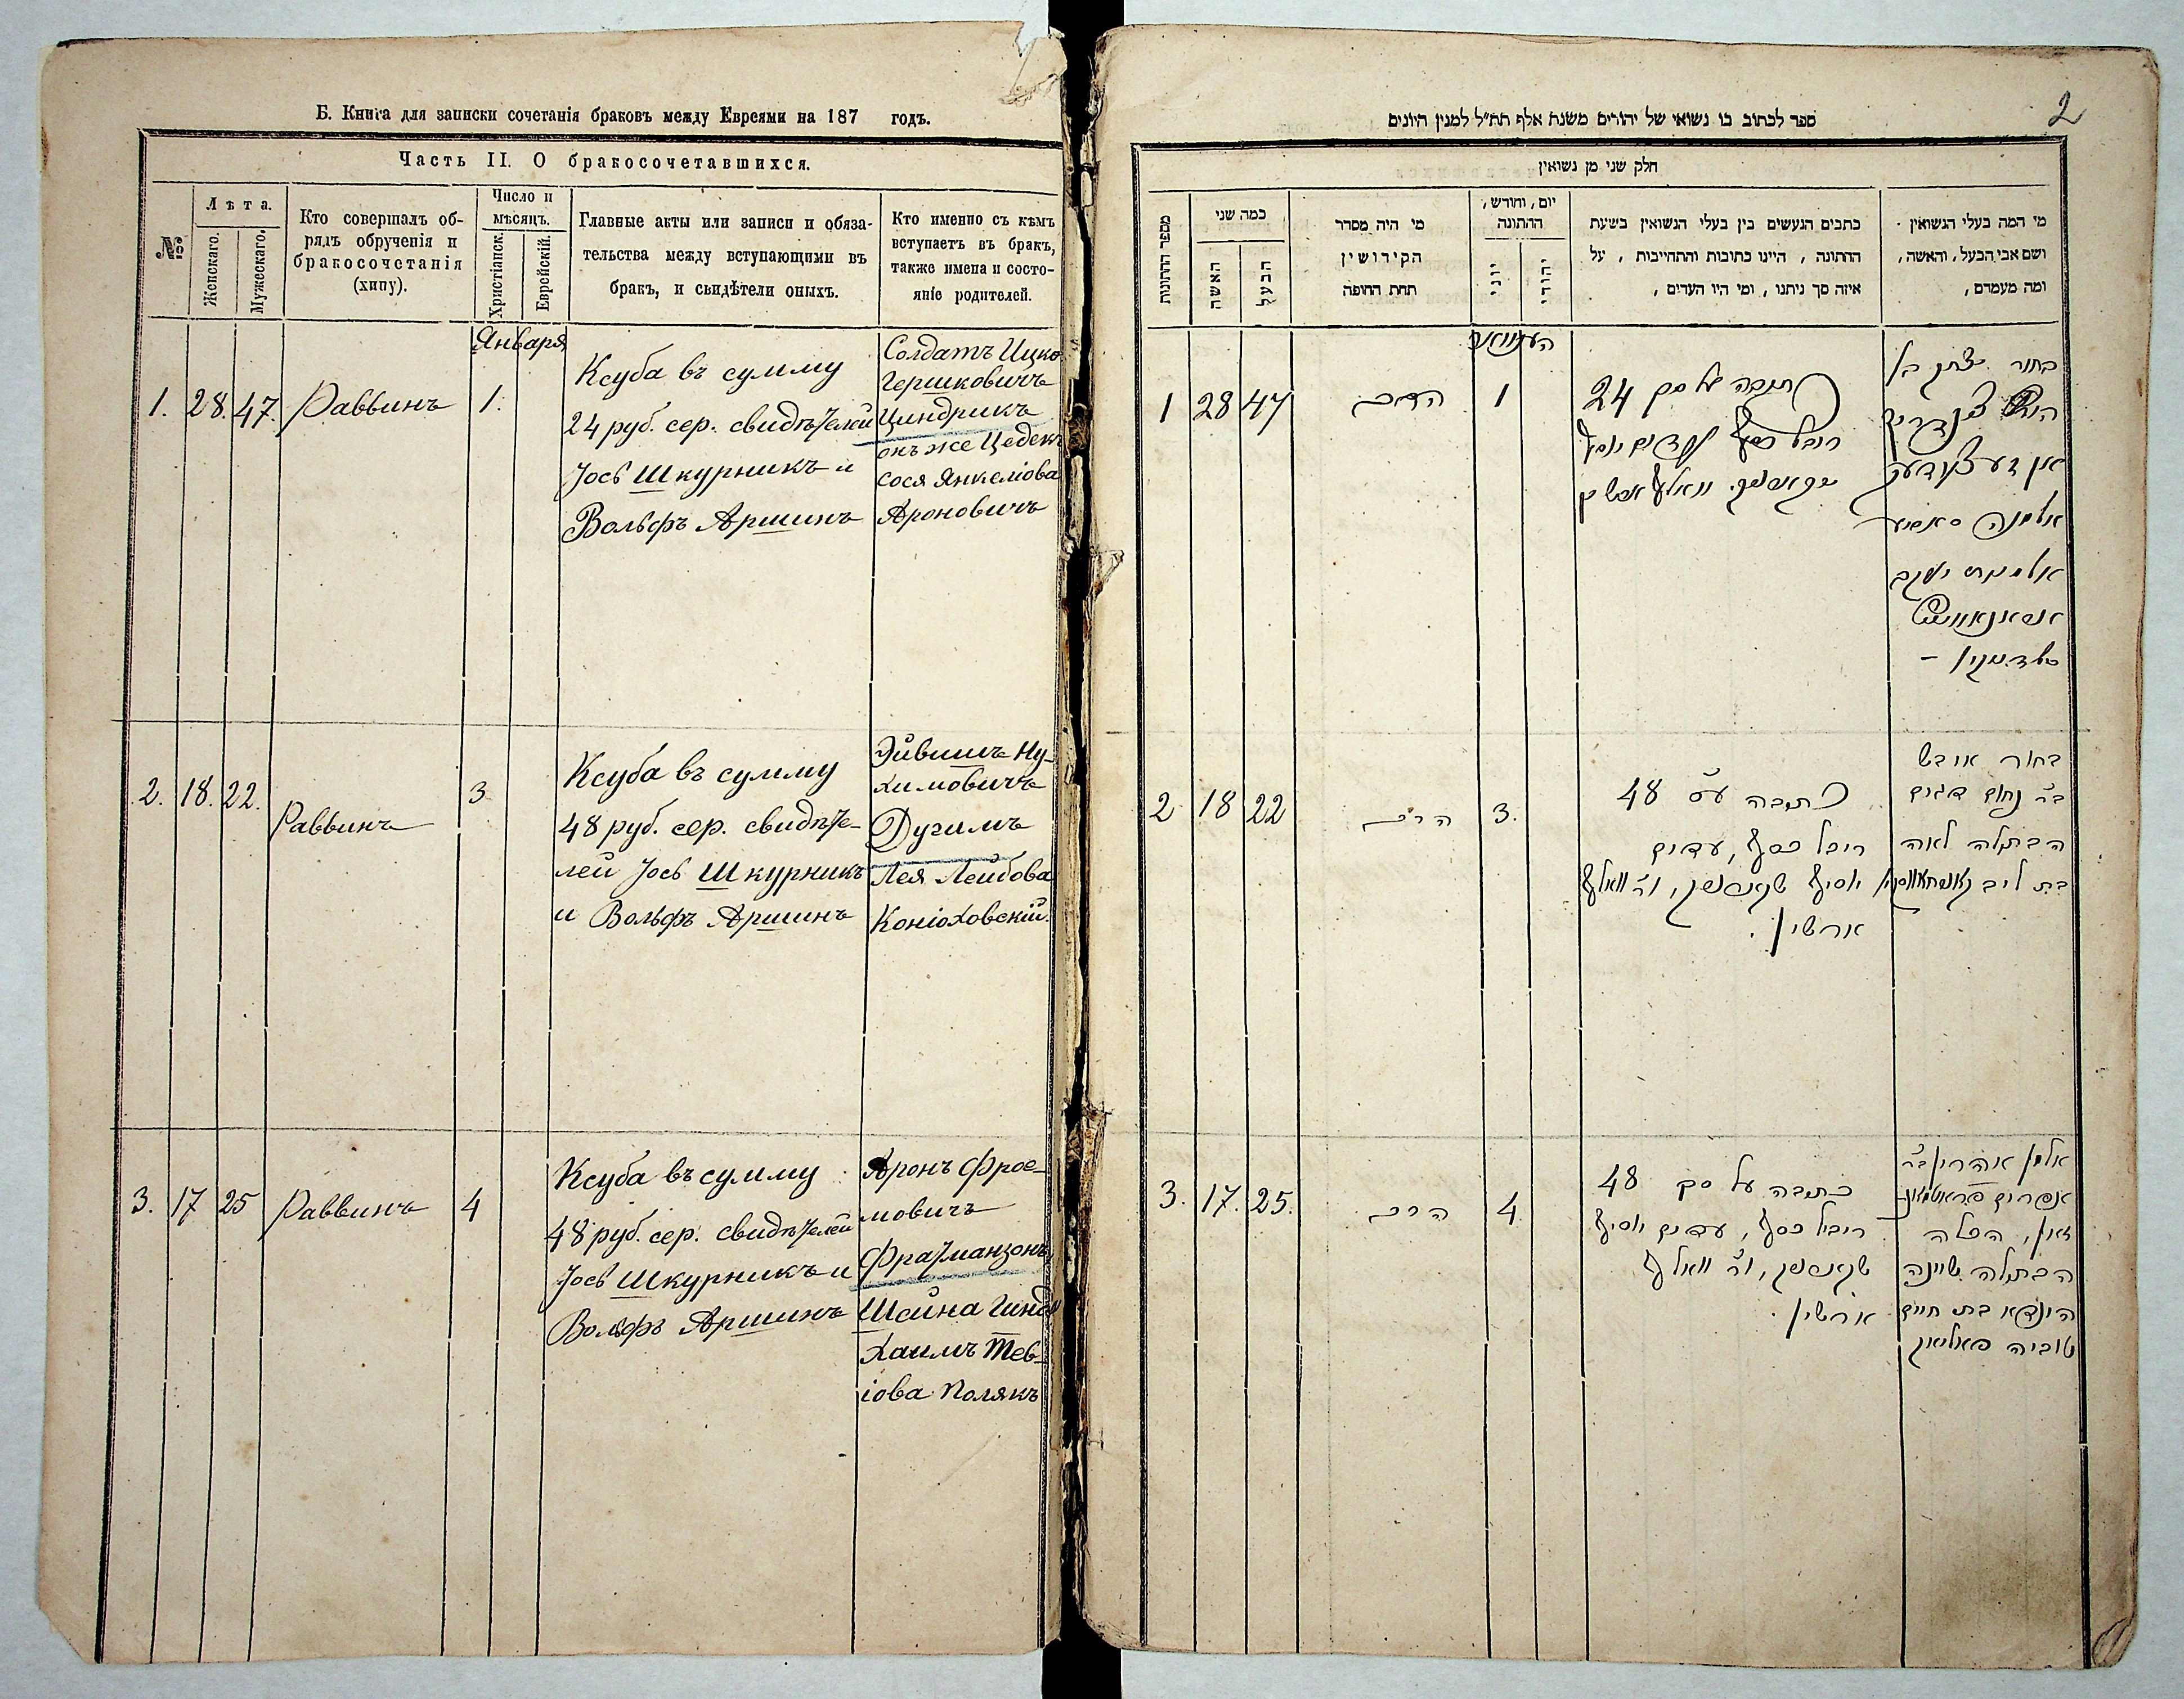 Б. Книга для записки сочетанія браковъ между Евреями на 187 годъ.
Часть II. О бракосочетавшихся.
№
Лѣта.
Женскаго.
Мужескаго.
Кто совершалъ об-
рядъ обрученія и
бракосочетанія
(хипу).
Число и
мѣсяцъ.
Христіанск.
Еврейскій.
Главные акты или записи и обяза-
тельства между вступающими въ
бракъ, и свидѣтели оныхъ.
Кто именно съ кѣмъ
вступаетъ въ бракъ,
также имена и состо-
яніе родителей.
Января
1. 28. 47. Раввинъ 1.
Ксуба въ сумму
24 руб. сер. свидѣтелей
Іосъ Шкурникъ и
Вольфъ Аршинъ
Солдатъ Ицко
Гершковичъ
Циндрикъ
онъ же Цедекъ
Сося Янкеліова
Ароновичъ
2. 18. 22. Раввинъ 3
Ксуба въ сумму
48 руб. сер. свидѣте-
лей Іосъ Шкурникъ
и Вольфъ Аршинъ
Эйвишъ Ну-
химовичъ
Дугимъ
Лея Лейбова
Коніоховскій.
3. 17 25 Раввинъ 4
Ксуба въ сумму
48 руб. сер. свидѣтелей
Іосъ Шкурникъ и
Вольфъ Аршинъ
Аронъ Фрое-
мовичъ
Фратманзонъ
Шейна Гинда
Хаимъ Тев-
іова Полякъ
2
ספר לכתוב בו נשואי של יהודים משנת אלף תת״ל למנין היונים
חלק שני מן נשואין
מספר החתונות
כמה שני
האשה
הבעל
מי היה מסדר
הקידושין
תחת החופה
יום, וחודש,
החתונה
יוני
יהודי
כתבים הנעשים בין בעלי הנשואין בשעת
החתונה, היינו כתובות והתחייבות, על
איזה סך ניתנו, ומי היו העדים,
מי המה בעלי הנשואין
ושם אבי הבעל, והאשה,
ומה מעמדם,
1 28 47 הרב 1
כתובה על סך 24
רובל כסף
בחור יצחק בן
2 18 22 הרב 3.
כתובה ע״ס 48
רובל כסף, עדים
יוסיף שקורניק, ור׳ וואלף
ארשין.
בחור אייבש
ב״ר נחום דוגים
הבתולה לאה
בת ליב
3. 17. 25. הרב 4
כתובה על סך 48
רוביל כסף, עדים יוסיף
שקורניק, ור׳ וואלף
ארשין.
אלמן אהרון ב״ר
אפרים פראטמאנ-
זאון, הכלה
הבתולה שיינה
הינדא בת חיים
טוביה פאליאק